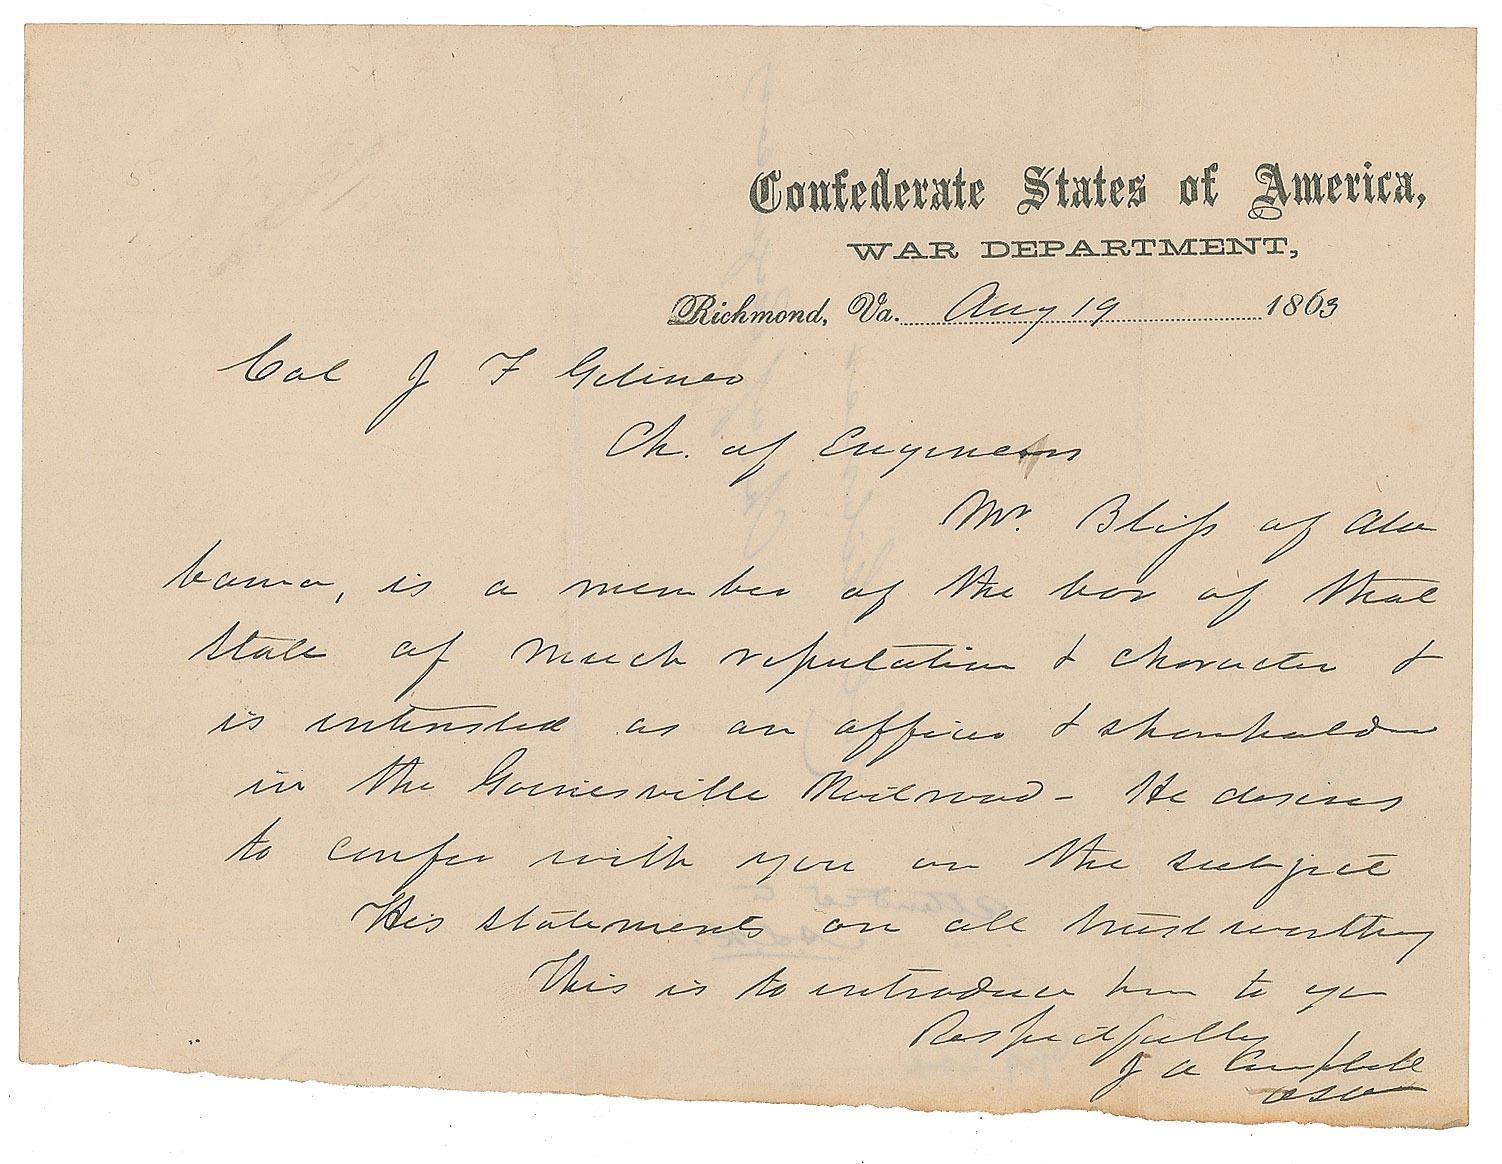 Confederate States of America,
WAR DEPARTMENT,
Richmond, Va. Aug 19 1863
Col J F Gilmer
Ch. of Engineers
Mr. Bliss of Ala
bama, is a member of the bar of that
state of much reputation & character &
is interested as an officer & shareholder
in the Gainesville Railroad - He desires
to confer with you on the subject
His statements are all trustworthy
This is to introduce him to you
Respectfully
J A Campbell
ASW